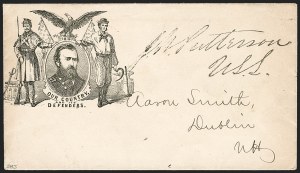 J W Patterson
U.S.S.
Aaron Smith,
Dublin
NH
OUR COUNTRY'S
DEFENDERS.